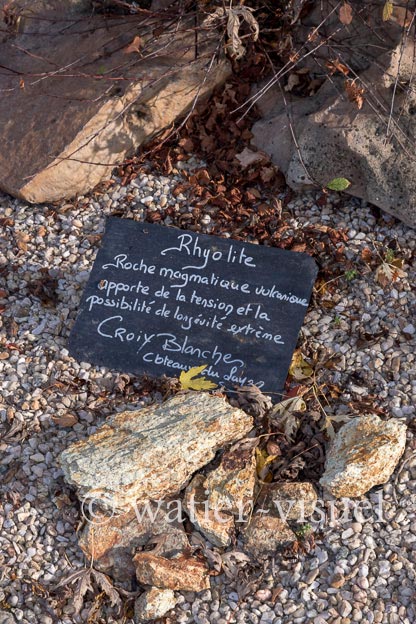 Rhyolite
Roche magmatique vulcanique
apporte de la tension et la
possibilité de longévité extrême
Croix Blanche
Coteaux du Layon
© Walter-visnel